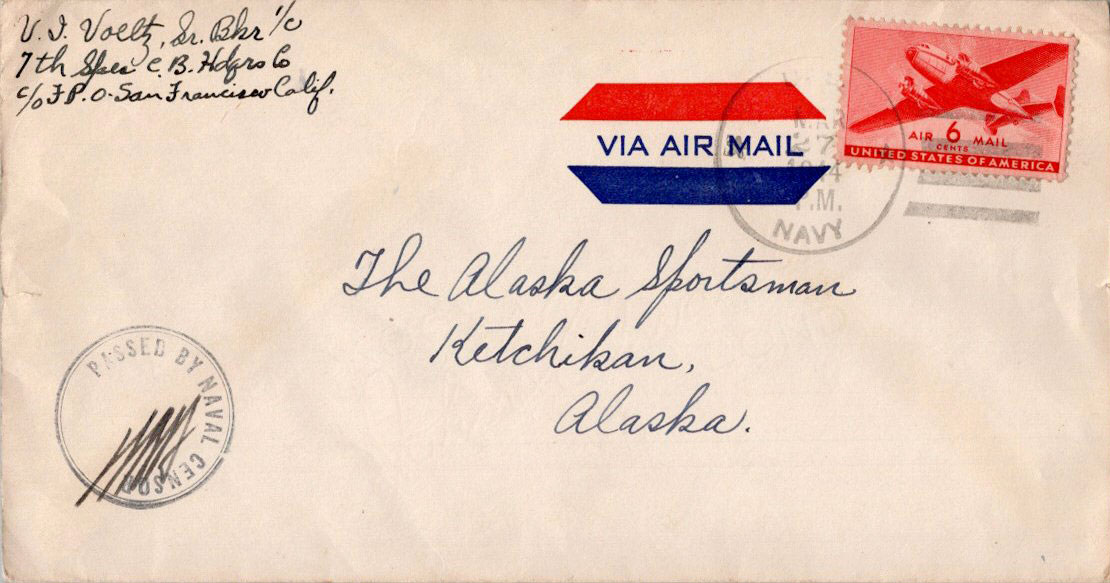 V. J. Voeltz, Sr. Bkr 1/c
7th Spec C. B. Hdqrs Co
c/o F.P.O. San Francisco Calif.
VIA AIR MAIL
MAR
27
1944
P.M.
NAVY
AIR 6 MAIL
CENTS
UNITED STATES OF AMERICA
The Alaska Sportsman
Ketchikan,
Alaska.
PASSED BY NAVAL CENSOR